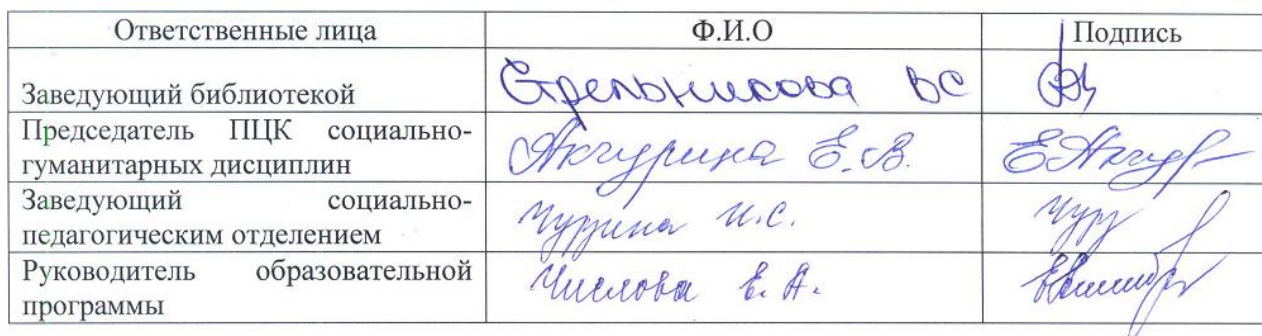 Ответственные лица Ф.И.О Подпись
Заведующий библиотекой Стрельникова ВС
Председатель ПЦК социально-
гуманитарных дисциплин Акчурина Е.В.
Заведующий социально-
педагогическим отделением И.С.
Руководитель образовательной
программы Числова Е.А.